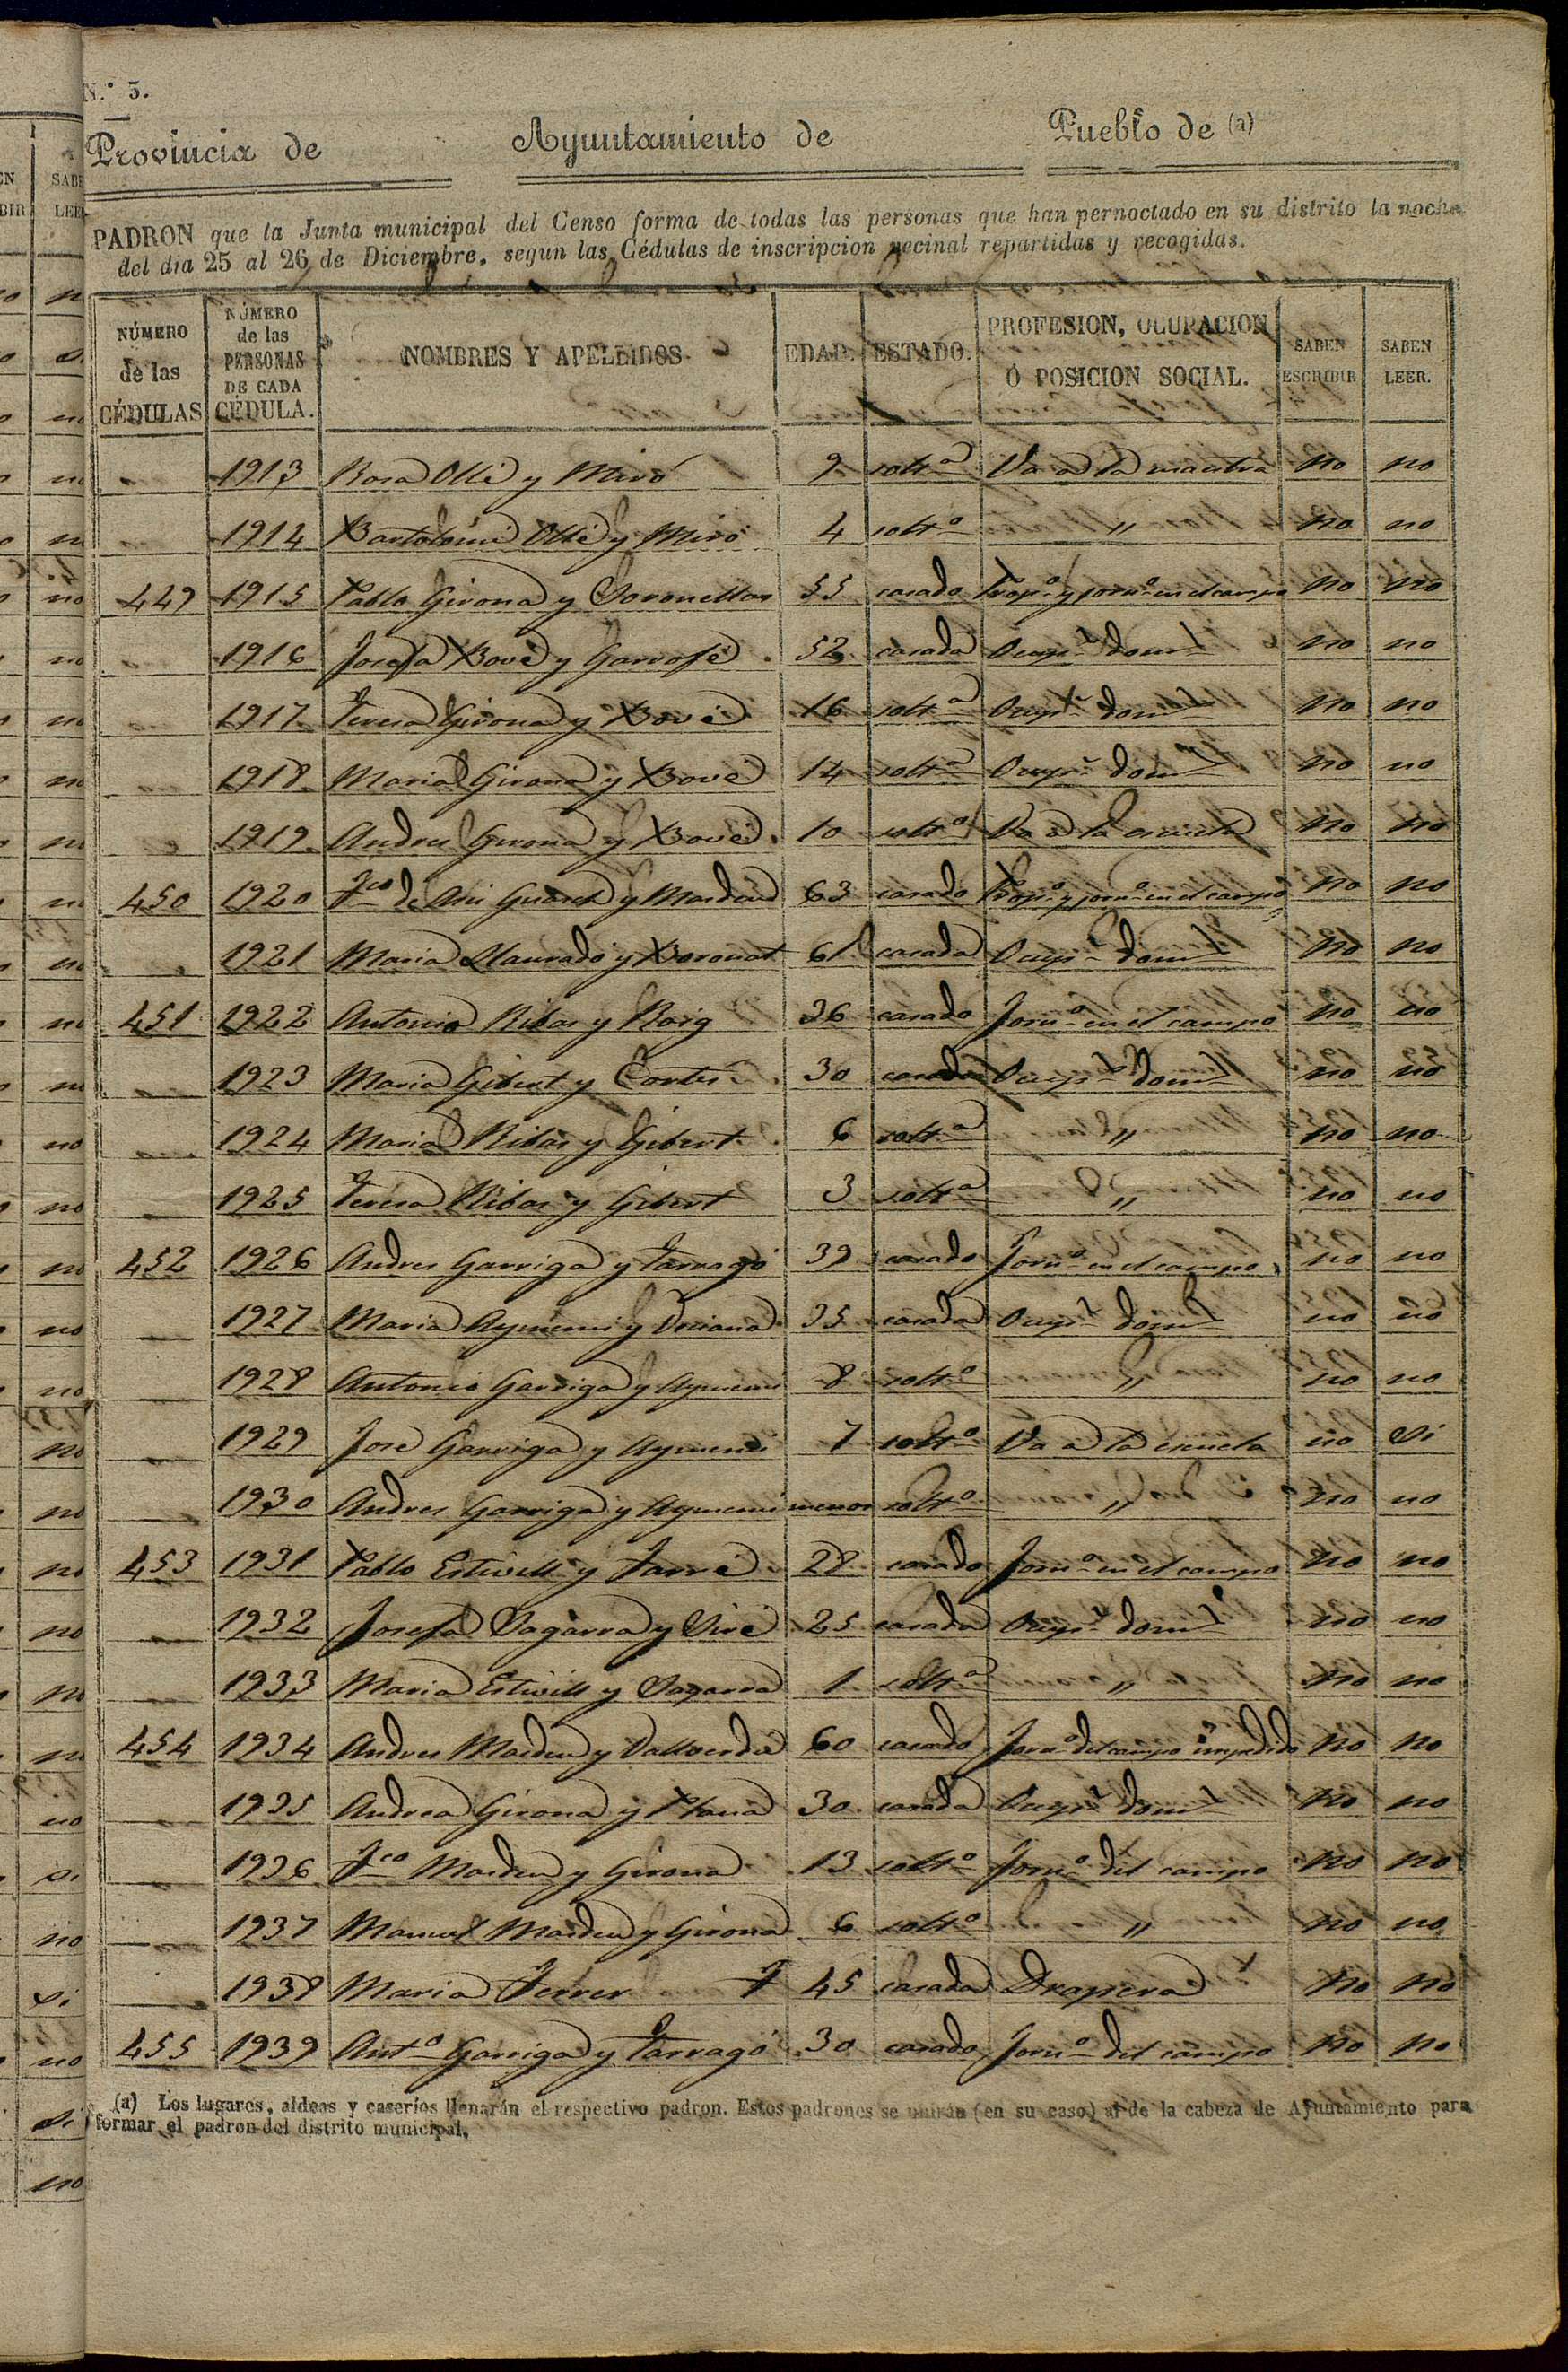 N.º 5.
Provincia de Ayuntamiento de Pueblo de (a)
PADRON que la Junta municipal del Censo forma de todas las personas que han pernoctado en su distrito la noche
del dia 25 al 26 de Diciembre, segun las Cédulas de inscripcion vecinal repartidas y recogidas.
NÚMERO de las CÉDULAS NÚMERO de las PERSONAS DE CADA CÉDULA. NOMBRES Y APELLIDOS EDAD. ESTADO. PROFESION, OCUPACION Ó POSICION SOCIAL. SABEN ESCRIBIR SABEN LEER.
1913 Rosa Ollé y Miró 9 solt.a Va a la maestra no no
1914 Bartolomé Ollé y Miró 4 solt.o " no no
449 1915 Pablo Girona y Coronellas 55 casado Prop.o y jorn.o en el campo no no
1916 Josefa Bové y Garrofé 52 casada Ocup.s dom.s no no
1917 Teresa Girona y Bové 16 solt.a Ocup.s dom.s no no
1918 Maria Girona y Bové 14 solt.a Ocup.s dom.s no no
1919 Andres Girona y Bové 10 solt.o Va a la escuela no no
450 1920 Fco de Asis y Mardeu 63 casado Prop.o y jorn.o en el campo no no
1921 Maria Llauradó y Boronat 61 casada Ocup.s dom.s no no
451 1922 Antonio Ribas y Roig 36 casado Jorn.o en el campo no no
1923 Maria Gibert y Cortés 30 casada Ocup.s dom.s no no
1924 Maria Ribas y Gibert 6 solt.a " no no
1925 Teresa Ribas y Gibert 3 solt.a " no no
452 1926 Andres Garriga y Tarragó 39 casado Jorn.o en el campo no no
1927 Maria Aymemi y 35 casada Ocup.s dom.s no no
1928 Antonio Garriga y Aymemi 8 solt.o " no no
1929 José Garriga y Aymemi 7 solt.o Va a la escuela no si
1930 Andres Garriga y Aymemi menor solt.o " no no
453 1931 Pablo Estivill y Farré 28 casado Jorn.o en el campo no no
1932 Josefa Sagarra y Siré 25 casada Ocup.s dom.s no no
1933 Maria Estivill y Sagarra 1 solt.a " no no
454 1934 Andres Mardeu y Vallverdú 60 casado Jorn.o del campo impedido no no
1935 Andrea Girona y Plana 30 casada Ocup.s dom.s no no
1936 Fco Mardeu y Girona 13 solt.o Jorn.o del campo no no
1937 Manuel Mardeu y Girona 6 solt.o " no no
1938 Maria Ferrer 45 casada Drapera no no
455 1939 Ant.o Garriga y Tarragó 30 casado Jorn.o del campo no no
(a) Los lugares, aldeas y caseríos llenarán el respectivo padron. Estos padrones se unirán (en su caso) al de la cabeza de Ayuntamiento para
formar el padron del distrito municipal.